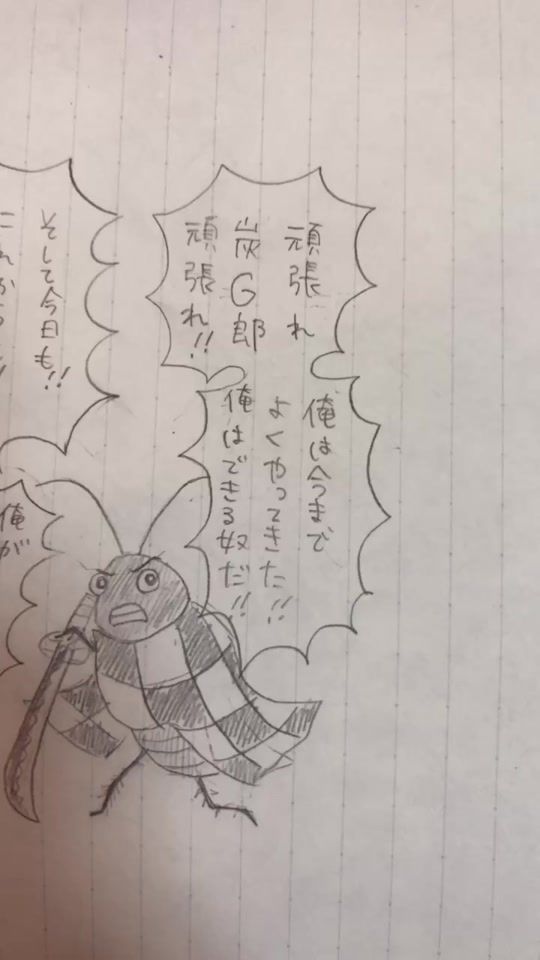 頑張れ
炭G郎
頑張れ!!
俺は今まで
よくやってきた!!
俺はできる奴だ!!
そして今日も!!
これからも!!
俺が